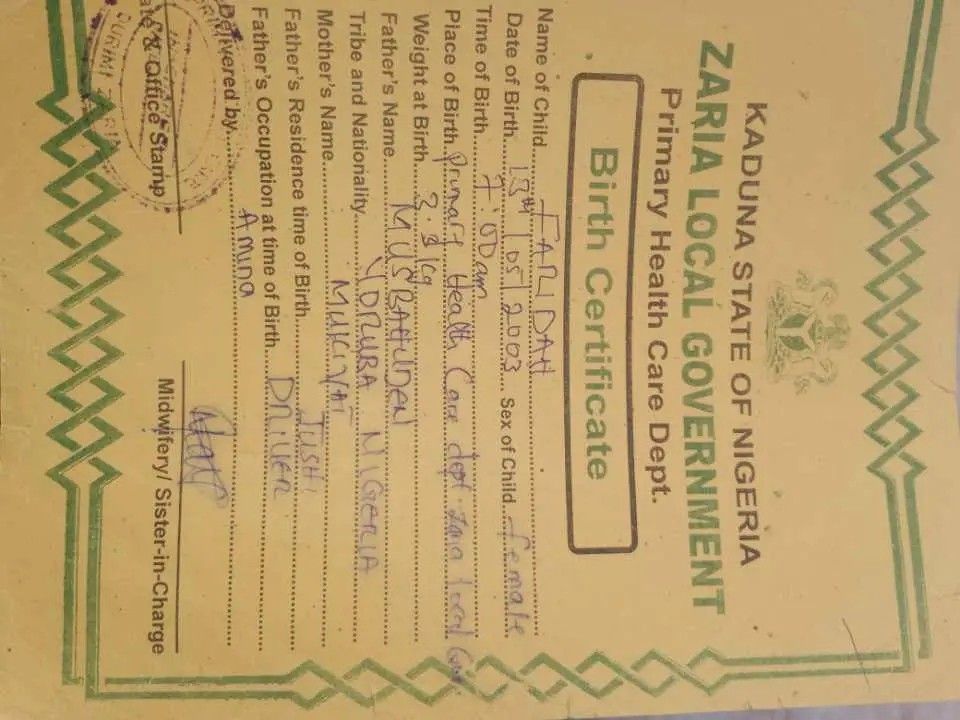 KADUNA STATE OF NIGERIA
ZARIA LOCAL GOVERNMENT
Primary Health Care Dept.
Birth Certificate
Name of Child FARIDAH
Date of Birth 13th/05/2003 Sex of Child female
Time of Birth 7:00am
Place of Birth Primary Health Care dept. Zaria local
Weight at Birth 3.3kg
Father's Name
Tribe and Nationality YORUBA NIGERIA
Mother's Name
Father's Residence time of Birth TUSHI
Father's Occupation at time of Birth DRIVER
Delivered by Amina
& Office Stamp
Midwifery/ Sister-in-Charge